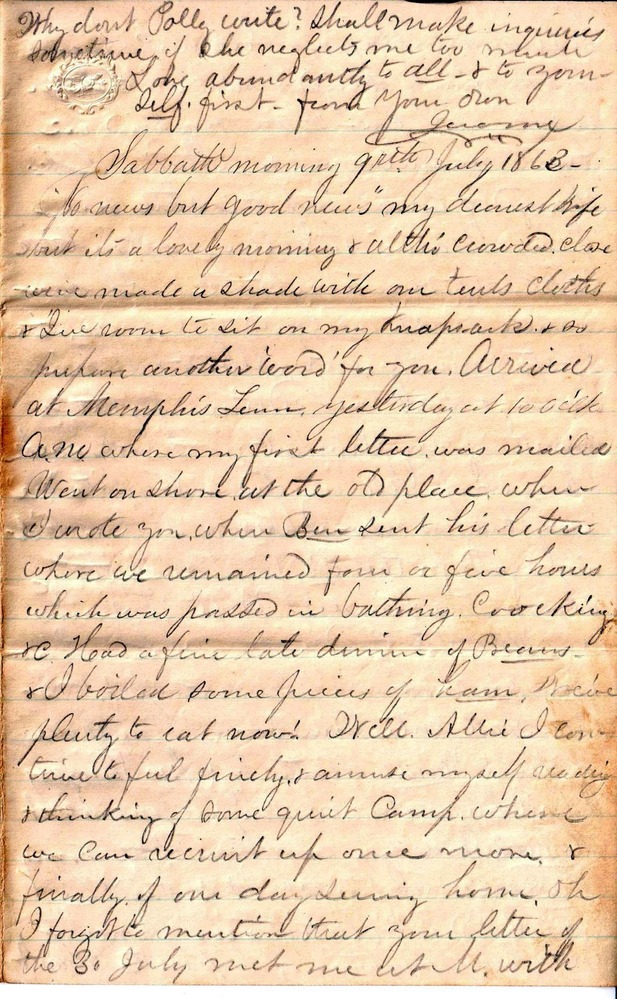 Why dont Polly write? Shall make inquiries
sometime if she neglects me too much
Love abundantly to all - & to your-
self first - from Your own
Jerome
Sabbath morning July 1863 -
"No news but good news" my dearest Wife
but its a lovely morning & altho crowded close
weve made a shade with our tents cloths
& Ive room to sit on my knapsack & so
prepare another 'word' for you. Arrived
at Memphis Tenn. yesterday at 10 oclk
A.M. where my first letter was mailed
Went on shore at the old place where
I wrote you, when Ben sent his letter
where we remained four or five hours
which was passed in bathing. Coocking
&c. Had a fine late dinner of Beans -
& I boiled some pieces of ham. Weeve
plenty to eat now! Well. Allie I con-
tinue to feel finely, & amuse myself reading
& thinking of some quiet Camp. where
we can recruit up once more, &
finally, of one day seeing home. Oh
I forgot to mention that your letter of
the 30 July met me at M. with